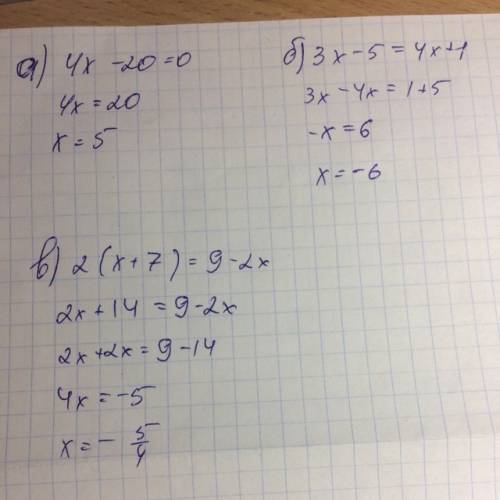 а) 4x - 20 = 0
4x = 20
x = 5
б) 3x - 5 = 4x + 1
3x - 4x = 1 + 5
-x = 6
x = -6
в) 2 (x + 7) = 9 - 2x
2x + 14 = 9 - 2x
2x + 2x = 9 - 14
4x = -5
x = - 5/4